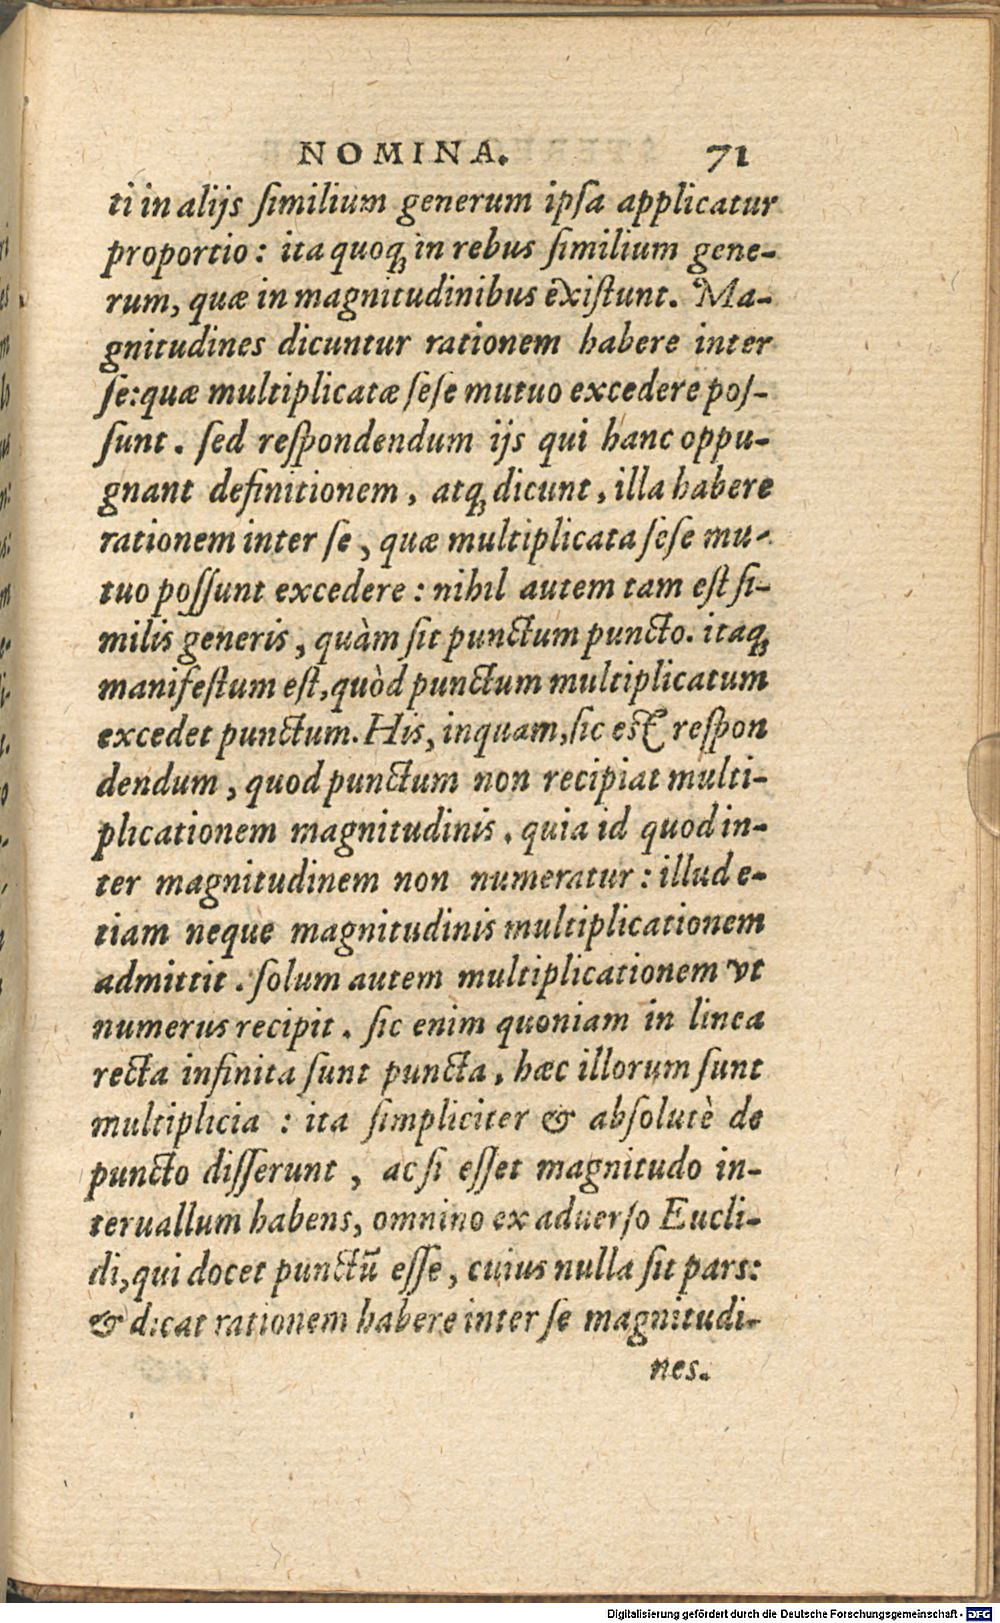 NOMINA. 71
ti in alijs ſimilium generum ipſa applicatur
proportio: ita quoq; in rebus ſimilium gene-
rum, quæ in magnitudinibus exiſtunt. Ma-
gnitudines dicuntur rationem habere inter
ſe: quæ multiplicatæ ſeſe mutuo excedere poſ-
ſunt. ſed reſpondendum ijs qui hanc oppu-
gnant definitionem, atq; dicunt, illa habere
rationem inter ſe, quæ multiplicata ſeſe mu-
tuo poſſunt excedere: nihil autem tam eſt ſi-
milis generis, quàm ſit punctum puncto. itaq;
manifeſtum eſt, quòd punctum multiplicatum
excedet punctum. His, inquam, ſic est reſpon
dendum, quod punctum non recipiat multi-
plicationem magnitudinis. quia id quod in-
ter magnitudinem non numeratur: illud e-
tiam neque magnitudinis multiplicationem
admittit. ſolum autem multiplicationem vt
numerus recipit. ſic enim quoniam in linea
recta infinita ſunt puncta, hæc illorum ſunt
multiplicia: ita ſimpliciter & abſolutè de
puncto diſſerunt, ac ſi eſſet magnitudo in-
teruallum habens, omnino ex aduerſo Eucli-
di, qui docet punctū eſſe, cuius nulla ſit pars:
& dicat rationem habere inter ſe magnitudi-
nes.
Digitalisierung gefördert durch die Deutsche Forschungsgemeinschaft - DFG